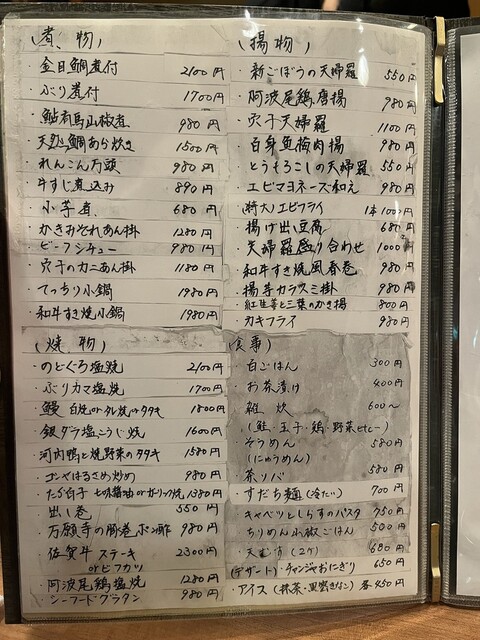 (煮物)
・金目鯛煮付 2100円
・ぶり煮付 1700円
・鮎有馬山椒煮 980円
・天然鯛あら炊き 1500円
・れんこん万頭 980円
・牛すじ煮込み 890円
・小芋煮 680円
・かきみぞれあん掛 1280円
・ビーフシチュー 980円
・穴子のカニあん掛 1180円
・てっちり小鍋 1980円
・和牛すき焼小鍋 1980円
(焼物)
・のどぐろ塩焼 2100円
・ぶりカマ塩焼 1700円
・鰻 白焼orタレ焼orタタキ 1800円
・銀ダラ塩こうじ焼 1600円
・河内鴨と焼野菜のタタキ 1580円
・ゴンヤはるさめ炒め 980円
・たら白子 七味醤油orガーリック焼 1380円
・出し巻 550円
・万願寺の豚巻ポン酢 980円
・佐賀牛ステーキ 2300円
orビフカツ
・阿波尾鶏塩焼 1280円
・シーフードグラタン 980円
(揚物)
・新ごぼうの天婦羅 550円
・阿波尾鶏唐揚 980円
・穴子天婦羅 1100円
・白身魚梅肉揚 980円
・とうもろこしの天婦羅 550円
・エビマヨネーズ和え 980円
・(特大)エビフライ 1本1000円
・揚げ出し豆腐 680円
・天婦羅盛り合わせ 1000円
・和牛すき焼風春巻 980円
・揚芋カラスミ掛 980円
・紅生姜と三葉のかき揚 800円
・カキフライ 980円
(食事)
・白ごはん 300円
・お茶漬け 400円
・雑炊 600~
(鮭・玉子・鶏・野菜など)
・そうめん 580円
(にゅうめん)
・茶ソバ 580円
・すだち麺(冷たい) 700円
・キャベツとしらすのパスタ 950円
・ちりめん山椒ごはん 500円
・天むす(2ケ) 680円
・チャンジャおにぎり 650円
(デザート)
・アイス(抹茶・黒蜜きなこ) 各450円